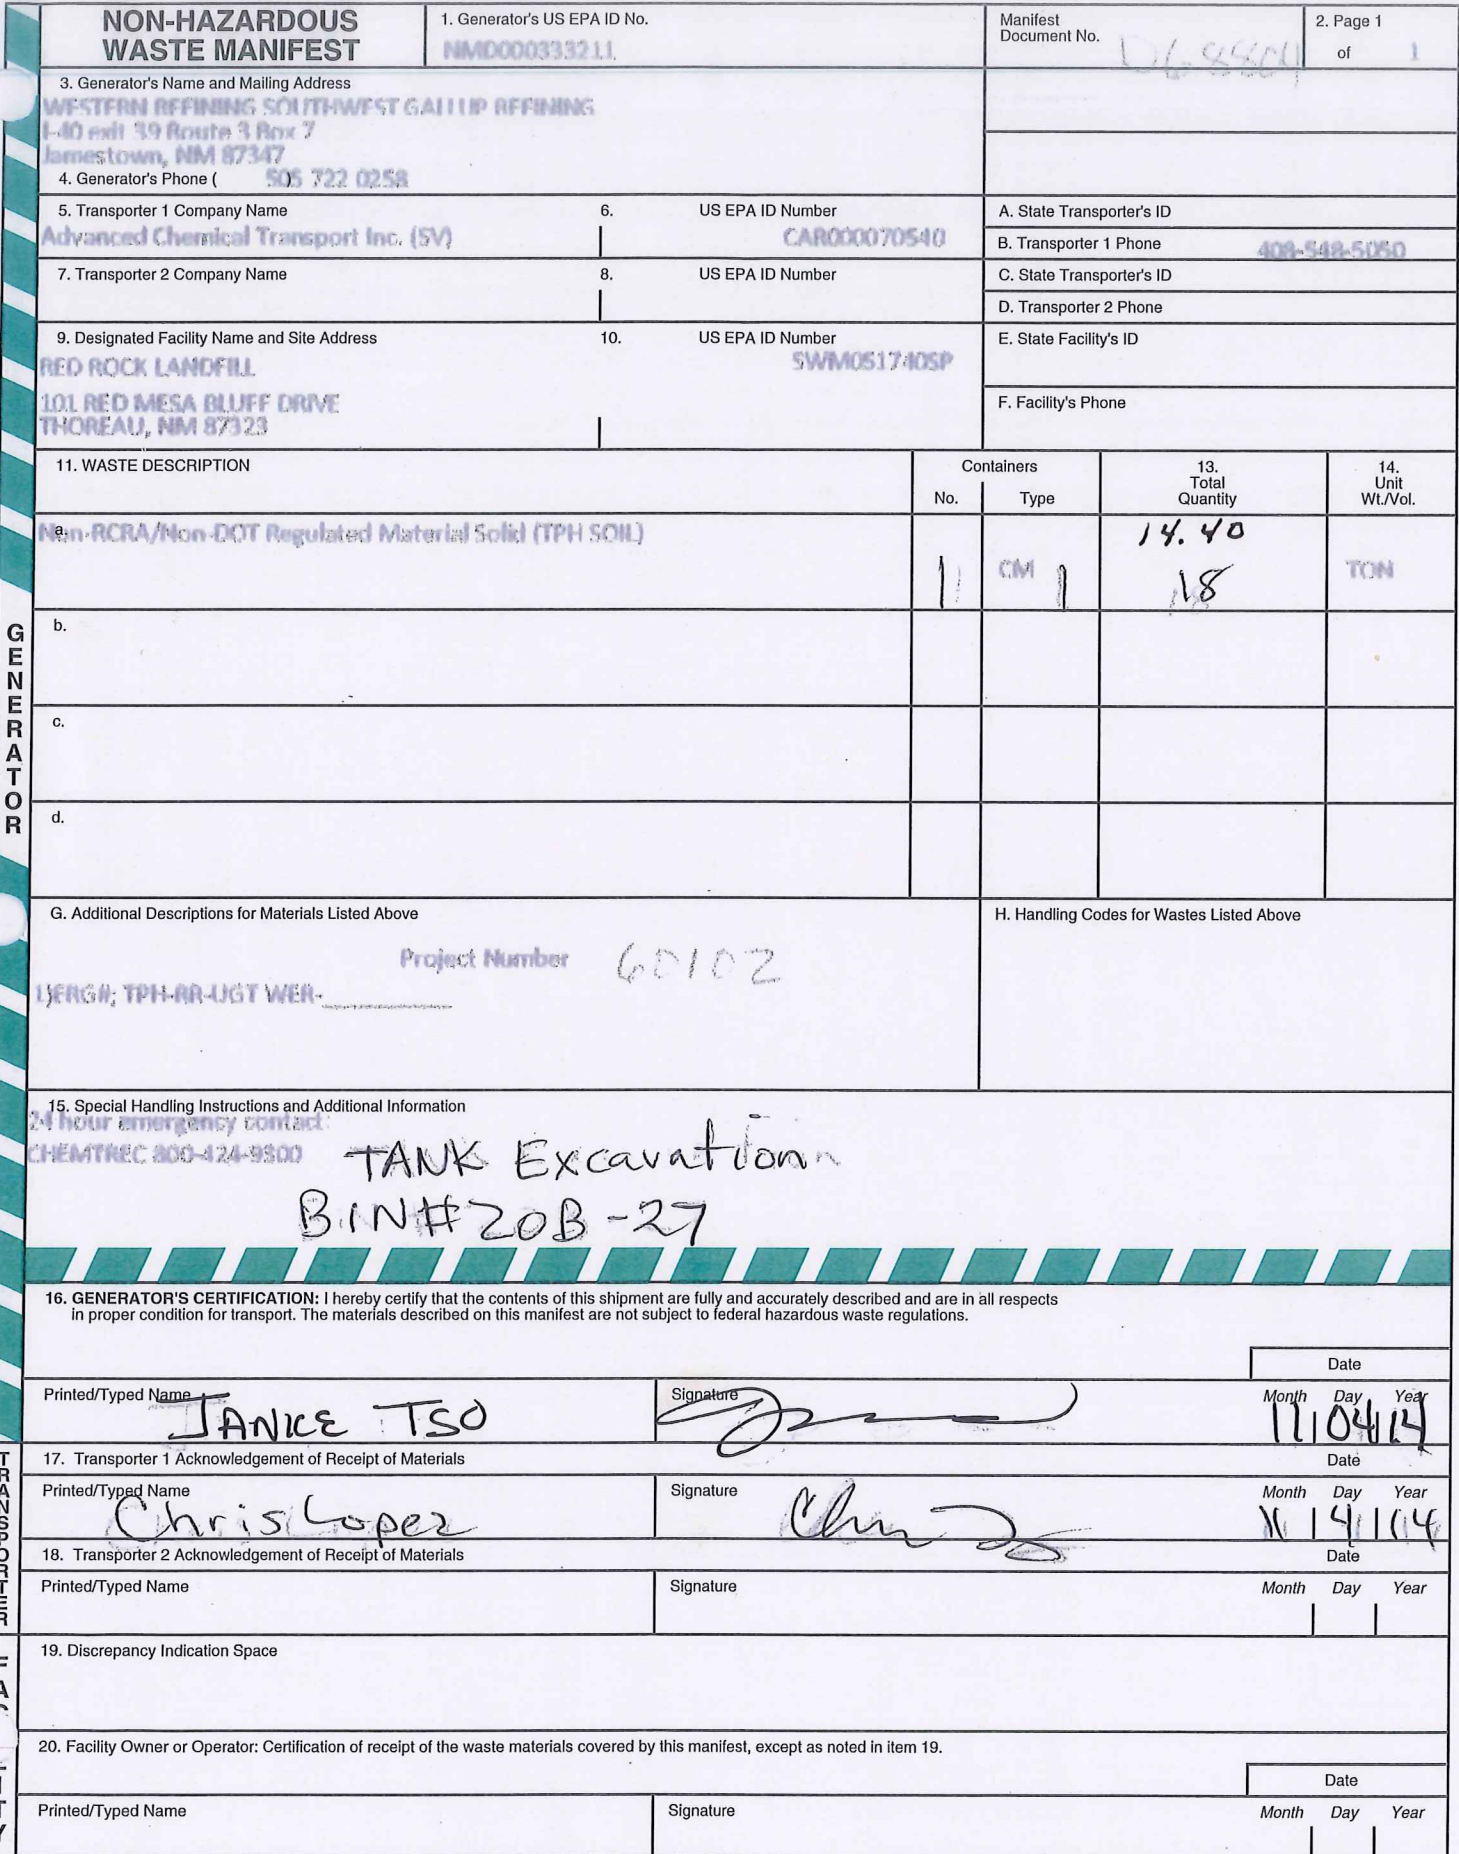 NON-HAZARDOUS
WASTE MANIFEST
1. Generator's US EPA ID No.
NMD000333211
Manifest
Document No.
2. Page 1
of 1
3. Generator's Name and Mailing Address
WESTERN REFINING SOUTHWEST GALLUP REFINING
I-40 exit 39 Route 3 Box 7
Jamestown, NM 87347
4. Generator's Phone ( 505 722 0258
5. Transporter 1 Company Name
6. US EPA ID Number
A. State Transporter's ID
Advanced Chemical Transport Inc. (SV)
CAR000070540
B. Transporter 1 Phone 408-548-5050
7. Transporter 2 Company Name
8. US EPA ID Number
C. State Transporter's ID
D. Transporter 2 Phone
9. Designated Facility Name and Site Address
10. US EPA ID Number
E. State Facility's ID
RED ROCK LANDFILL
SWM051740SP
101 RED MESA BLUFF DRIVE
THOREAU, NM 87323
F. Facility's Phone
11. WASTE DESCRIPTION
Containers
No.
Type
13.
Total
Quantity
14.
Unit
Wt./Vol.
a.
Non-RCRA/Non-DOT Regulated Material Solid (TPH SOIL)
14.40
1 CM 18 TON
b.
c.
d.
GENERATOR
G. Additional Descriptions for Materials Listed Above
H. Handling Codes for Wastes Listed Above
Project Number 60102
1)ERG#; TPH-RR-UGT WER-
15. Special Handling Instructions and Additional Information
24 hour emergency contact:
CHEMTREC 800-424-9300
TANK Excavation
BIN#20B-27
16. GENERATOR'S CERTIFICATION: I hereby certify that the contents of this shipment are fully and accurately described and are in all respects
in proper condition for transport. The materials described on this manifest are not subject to federal hazardous waste regulations.
Date
Printed/Typed Name
Signature
Month Day Year
JANICE TSO
11 04 14
17. Transporter 1 Acknowledgement of Receipt of Materials
Date
Printed/Typed Name
Signature
Month Day Year
Chris Lopez
11 4 14
18. Transporter 2 Acknowledgement of Receipt of Materials
Date
Printed/Typed Name
Signature
Month Day Year
TRANSPORTER
19. Discrepancy Indication Space
20. Facility Owner or Operator: Certification of receipt of the waste materials covered by this manifest, except as noted in item 19.
Date
Printed/Typed Name
Signature
Month Day Year